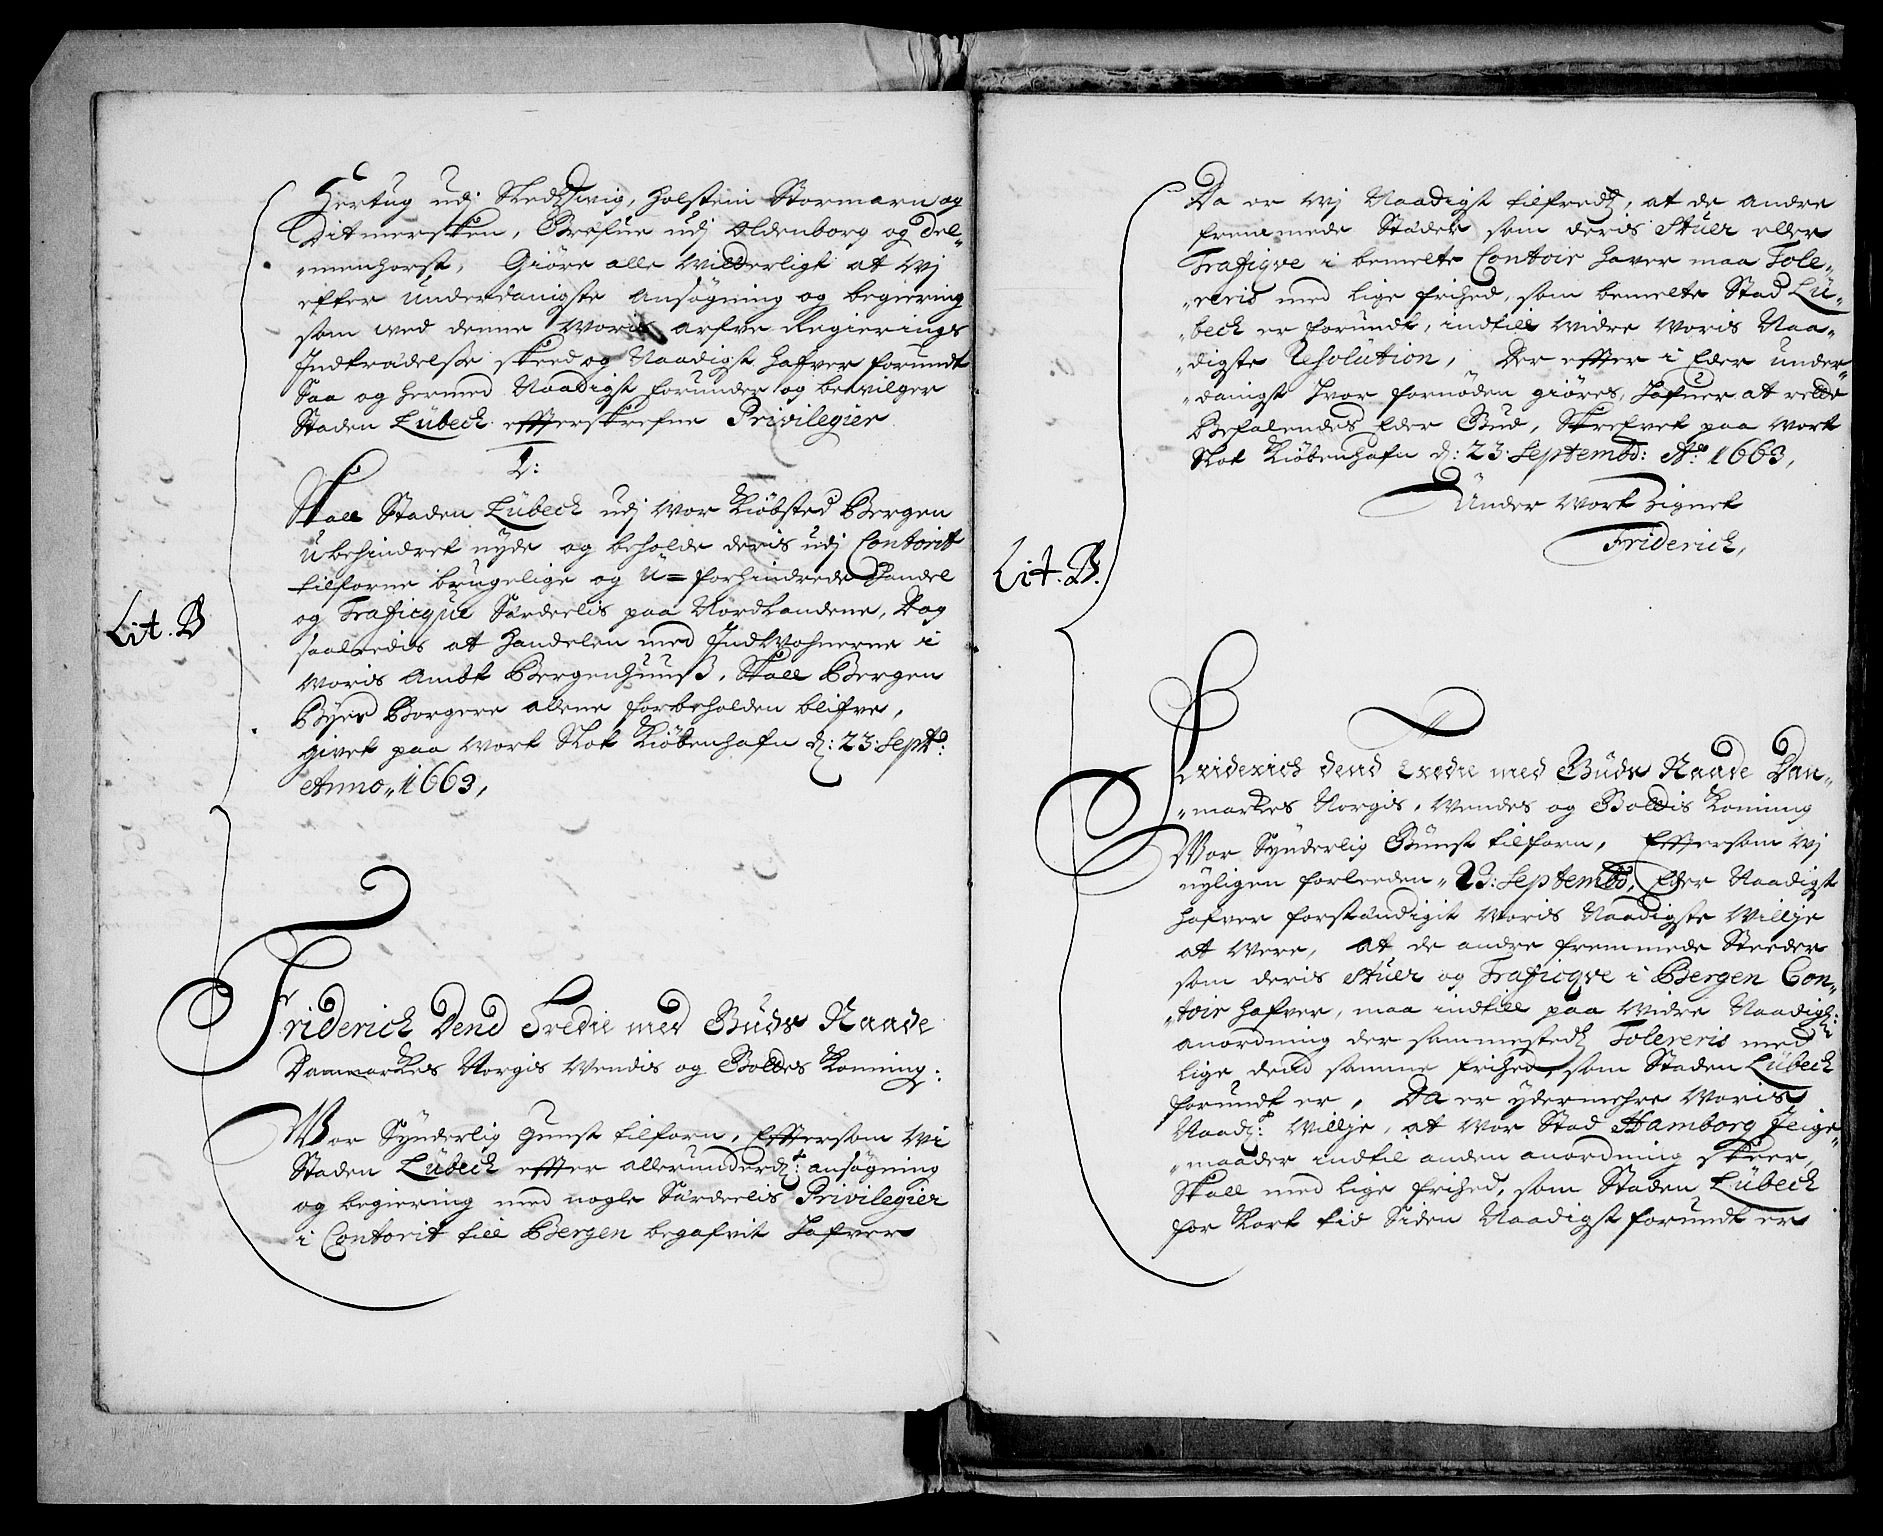 Hertug udj Sledzwig, Holstein Stormarn og
Ditmersken, Grefue udj Oldenborg og Del„
„menhorst, Giöre alle Witterligt at Wj
effter Underdanigste ansögning og begiering
som wed denne Woris arfve Regierings
Indträdelsse skeed og Naadigst haffver forundt
Saa og hermed Naadigst forunder og bevilger
Staden Lübech effterskrefne Privilegier
I:
Skall Staden Lübech udj Wor Kiöbsted Bergen
Ubehindret nyde og beholde deris udj Contorit
tilforne brugelige og U=forhindrede Handel
og Traficque Särdeelis paa Nordlandene, Dog
saaledis at Handelen med Indwohnerne i
Woris Ambt Bergenhuuß, Skall Bergen
Byes Borgere alene forbeholden blifve,
givet paa Wort Slot Kiöbenhafn d: 23: Septb:
Anno„ 1663,
Lit. B
Friderich Dend Tredie med Guds Naade
Danmarkes Norgis Wendis og Gottes Koning:
Wor Synderlig Gunst tilforn, Efftersom Wi
Staden Lübech effter allerunderd: ansögning
og begiering med nogle Särdeelis Privilegier
i Contorit till Bergen begafvit hafver
Da er Wj Naadigst tilfreds, at de andre
fremmede Städer som deris Stuer eller
Trafiqve i bemelte Contoir haver maa Tole„
„reris med lige frihed, som bemelte Stad Lü„
„bech er forundt, indtill Widre Woris Naa„
„digste Resolution, Der effter i Eder under„
„danigst hvor fornöden giöres, hafver at rette
Befalendes Eder Gud, Skrefvet paa Wort
Slot Kiöbenhafn d: 23: Septembr: Ao: 1663,
Under Wort Zignet
Friderich,
Lit. B.
Friderich dend Tredie med Guds Naade Dan„
„markes Norgis, Wendes og Gottis Koning
Wor Synderlig Gunst tilforn, Efftersom Wj
nyligen forleeden„ 23: Septembr, Eder Naadigst
hafver forständigit Woris Naadigste Willje
at Were, at de andre fremmede Steeder
som deris Stuer og Traficqve i Bergen Con„
„toir hafver, maa indtill paa Widre Naadigst:
anordning der sammesteds Tolereris med
lige dend samme frihed, som Staden Lübech
forundt er, Da er ydermehre Woris
Naad: Willje, at Wor Stad Hamborg Jlige„
„maader indtil anden anordning skeer,
Skall med lige frihed, som Staden Lübech
for Kort tid Siden Naadigst forundt er